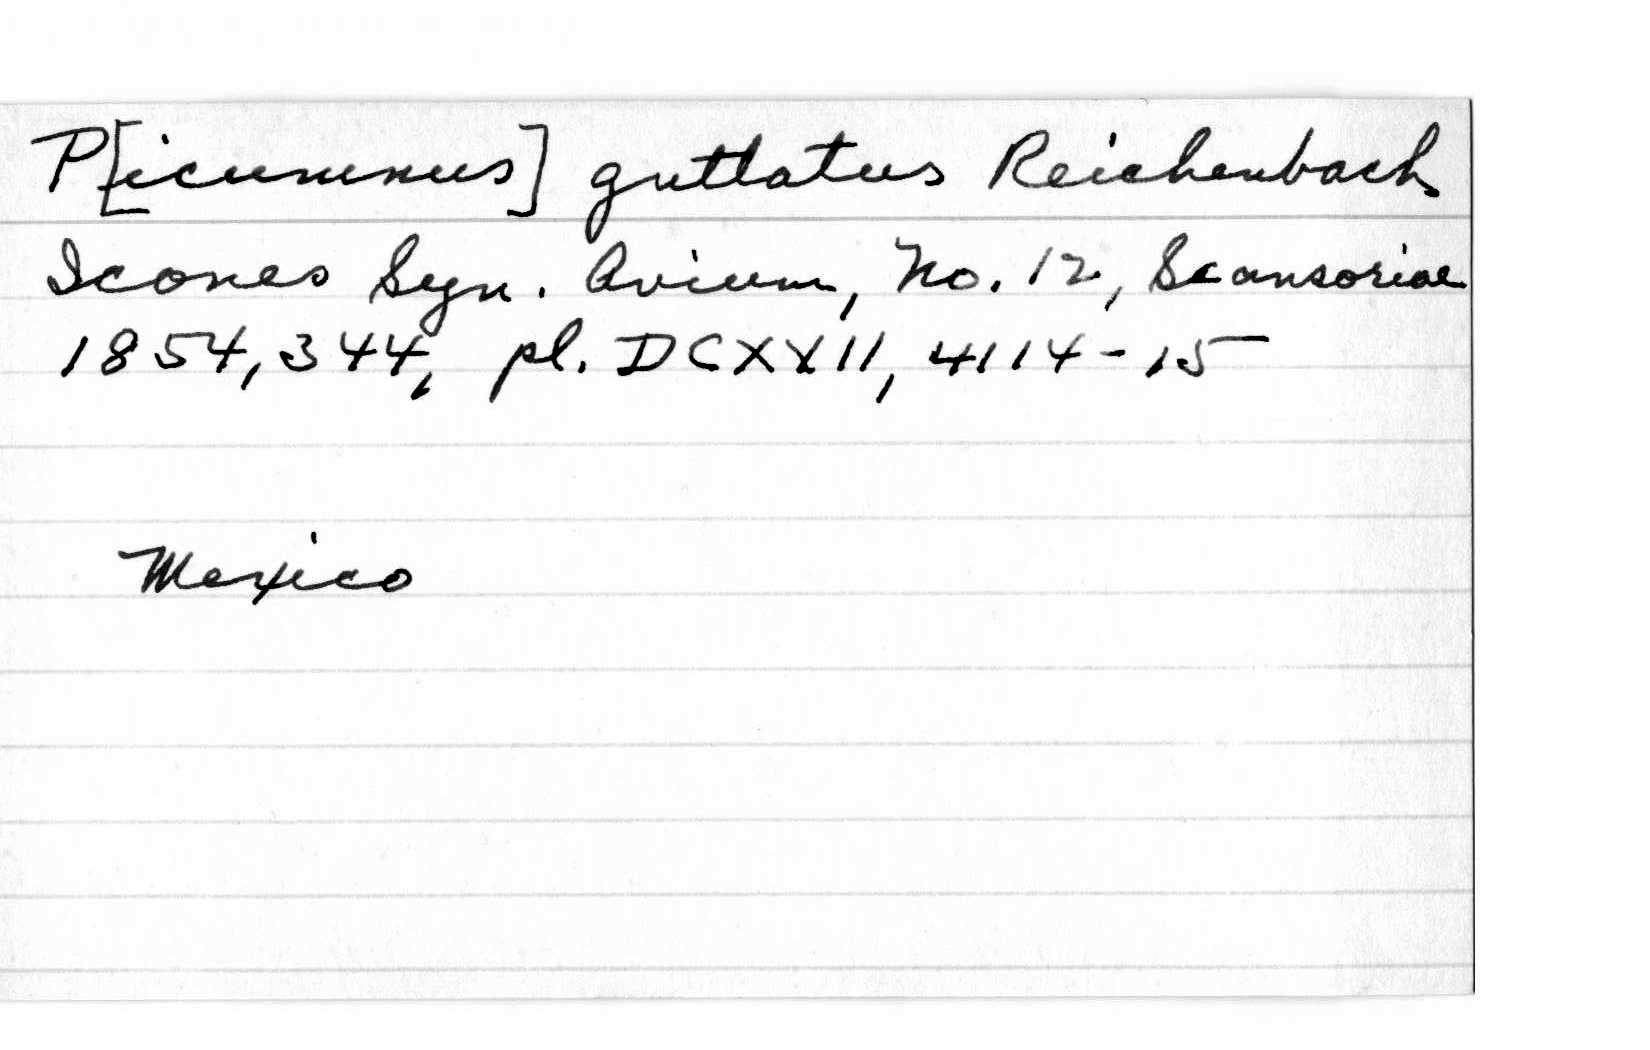 P[icumnus] guttatus Reichenbach
Icones Syn. Avium, No. 12, Scansoriae
1854, 344, pl. DCXXII, 4114-15
Mexico